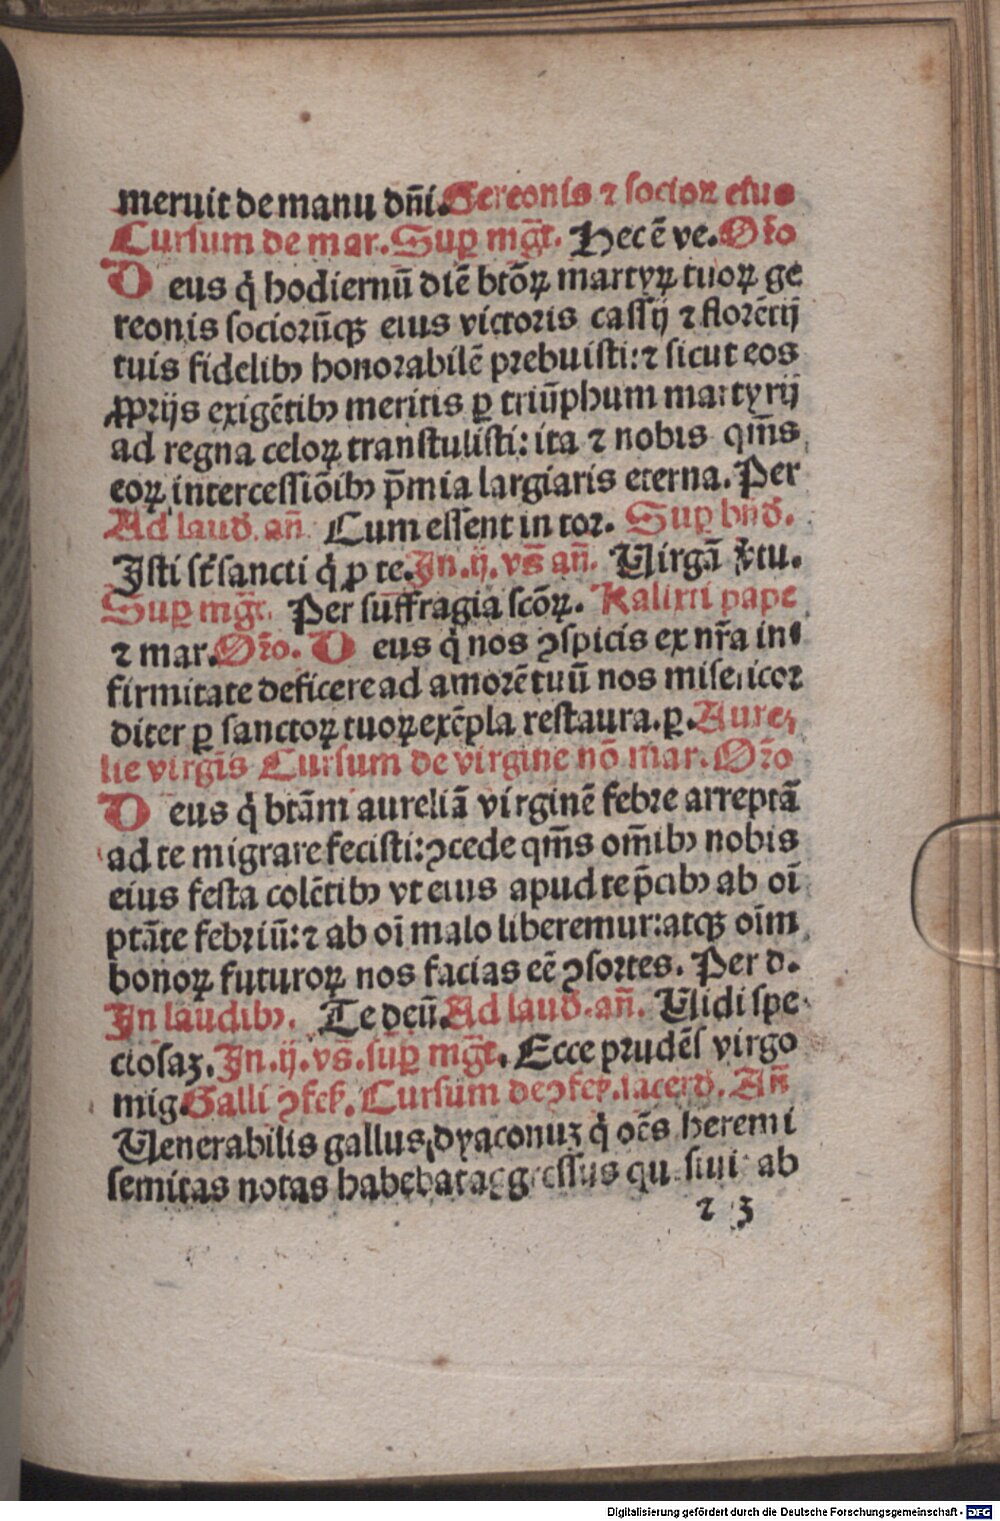 meruit de manu dñi. Gereonis ⁊ socioꝝ eius
Cursum de mar. Suꝑ mg̃t. Hec ē ve. Oŕo
Deus q̇ hodiernū diē btōꝝ martyꝝ tuoꝝ ge
reonis sociorūqꝫ eius victoris cassij ⁊ florētij
tuis fidelibꝰ honorabilē prebuisti: ⁊ sicut eos
ꝓprijs exigētibꝰ meritis ꝑ triūphum martyrij
ad regna celoꝝ transtulisti: ita ⁊ nobis qm̄s
eoꝝ intercessiōibꝰ p̄mia largiaris eterna. Per
Ad laud. añ. Cum essent in tor. Suꝑ bñd.
Isti st̄ sancti q̇ ꝓ te. In .ij. vs̄ añ. Uirgā x̄tu.
Suꝑ mg̃t. Per suffragia scōꝝ. Kalixti pape
⁊ mar. Oŕo. Deus q̇ nos ꝯspicis ex nr̄a in
firmitate deficere ad amorē tuū nos misericor
diter ꝑ sanctoꝝ tuoꝝ exēpla restaura. ꝑ. Aure⸗
lie virgīs Cursum de virgine nō mar. Oŕo
Deus q̇ btām aureliā virginē febre arreptā
ad te migrare fecisti: ꝯcede qm̄s om̄ibꝰ nobis
eius festa colētibꝰ vt eius apud te p̄cibꝰ ab oī
ptāte febriū: ⁊ ab oī malo liberemur: atqꝫ oīm
bonoꝝ futuroꝝ nos facias eē ꝯsortes. Per d.
In laudibꝰ. Te deū. Ad laud. añ. Uidi spe
ciosaꝫ. In .ij. vs̄. suꝑ mg̃t. Ecce prudēs virgo
mig. Galli ꝯfeſ. Cursum de ꝯfeſ. sacerd. Añ
Uenerabilis gallus dyaconuꝫ q̇ oēs heremi
semitas notas habebat aggressus ab
⁊ 3
Digitalisierung gefördert durch die Deutsche Forschungsgemeinschaft - DFG